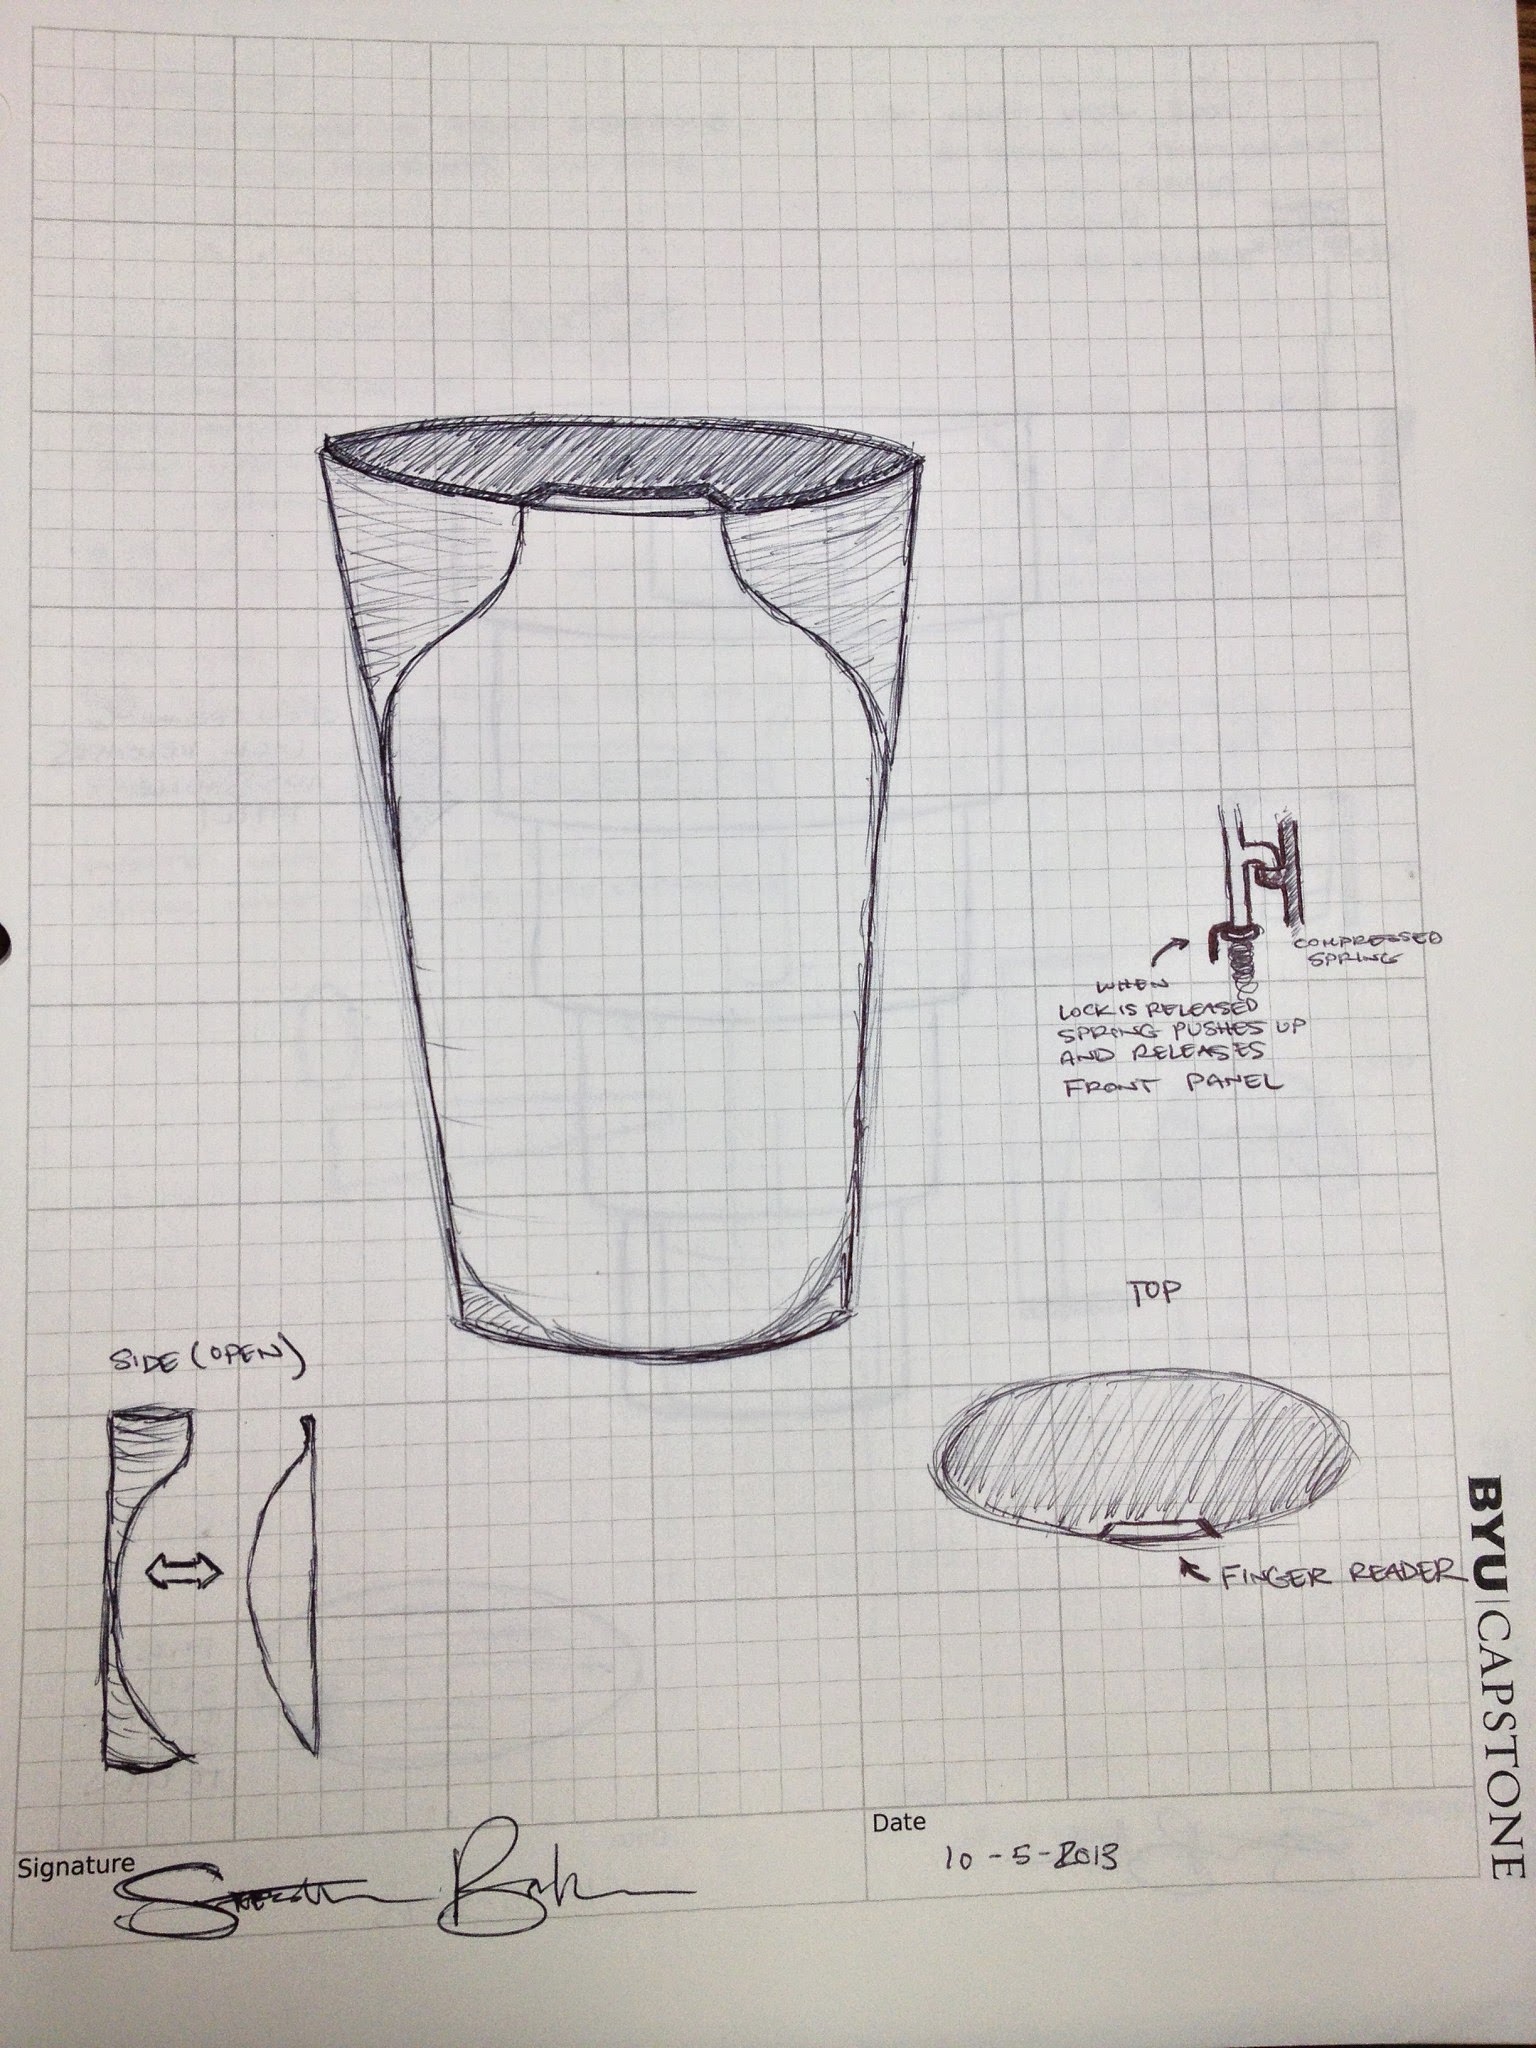 COMPRESSED
SPRING
WHEN
LOCK IS RELEASED
SPRING PUSHES UP
AND RELEASES
FRONT PANEL
TOP
SIDE (OPEN)
FINGER READER
BYU|CAPSTONE
Signature
Date
10-5-2013